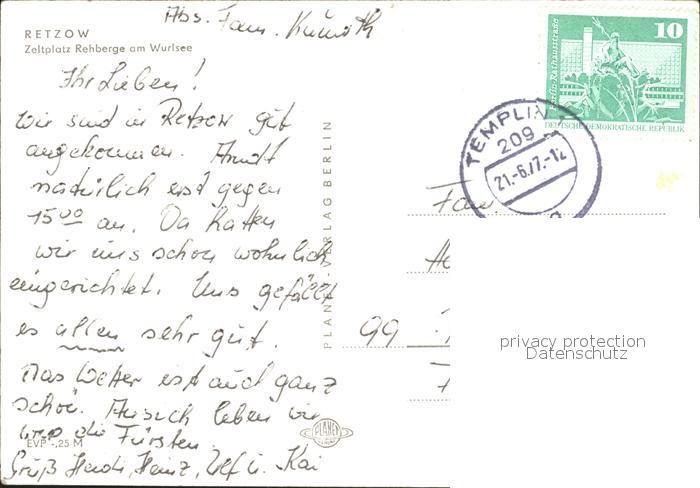 Abs. Fam. Kunoth
RETZOW
Zeltplatz Rehberge am Wurlsee
Ihr Lieben!
Wir sind in Retzow gut
angekommen. Arndt
natürlich erst gegen
15 00 an. Da hatten
wir uns schon wohnlich
eingerichtet. Uns gefällt
es allen sehr gut.
Das Wetter ist auch ganz
schön. Ansich leben wir
wie die Fürsten.
EVP -,25 M
Gruß Heidi, Heinz, Ulf u. Kai
PLANET-VERLAG BERLIN
PLANET
10
Berlin-Rathausstraße
DEUTSCHE DEMOKRATISCHE REPUBLIK
TEMPLIN
209
21.-6.77.-12
Fam.
99
privacy protection
Datenschutz